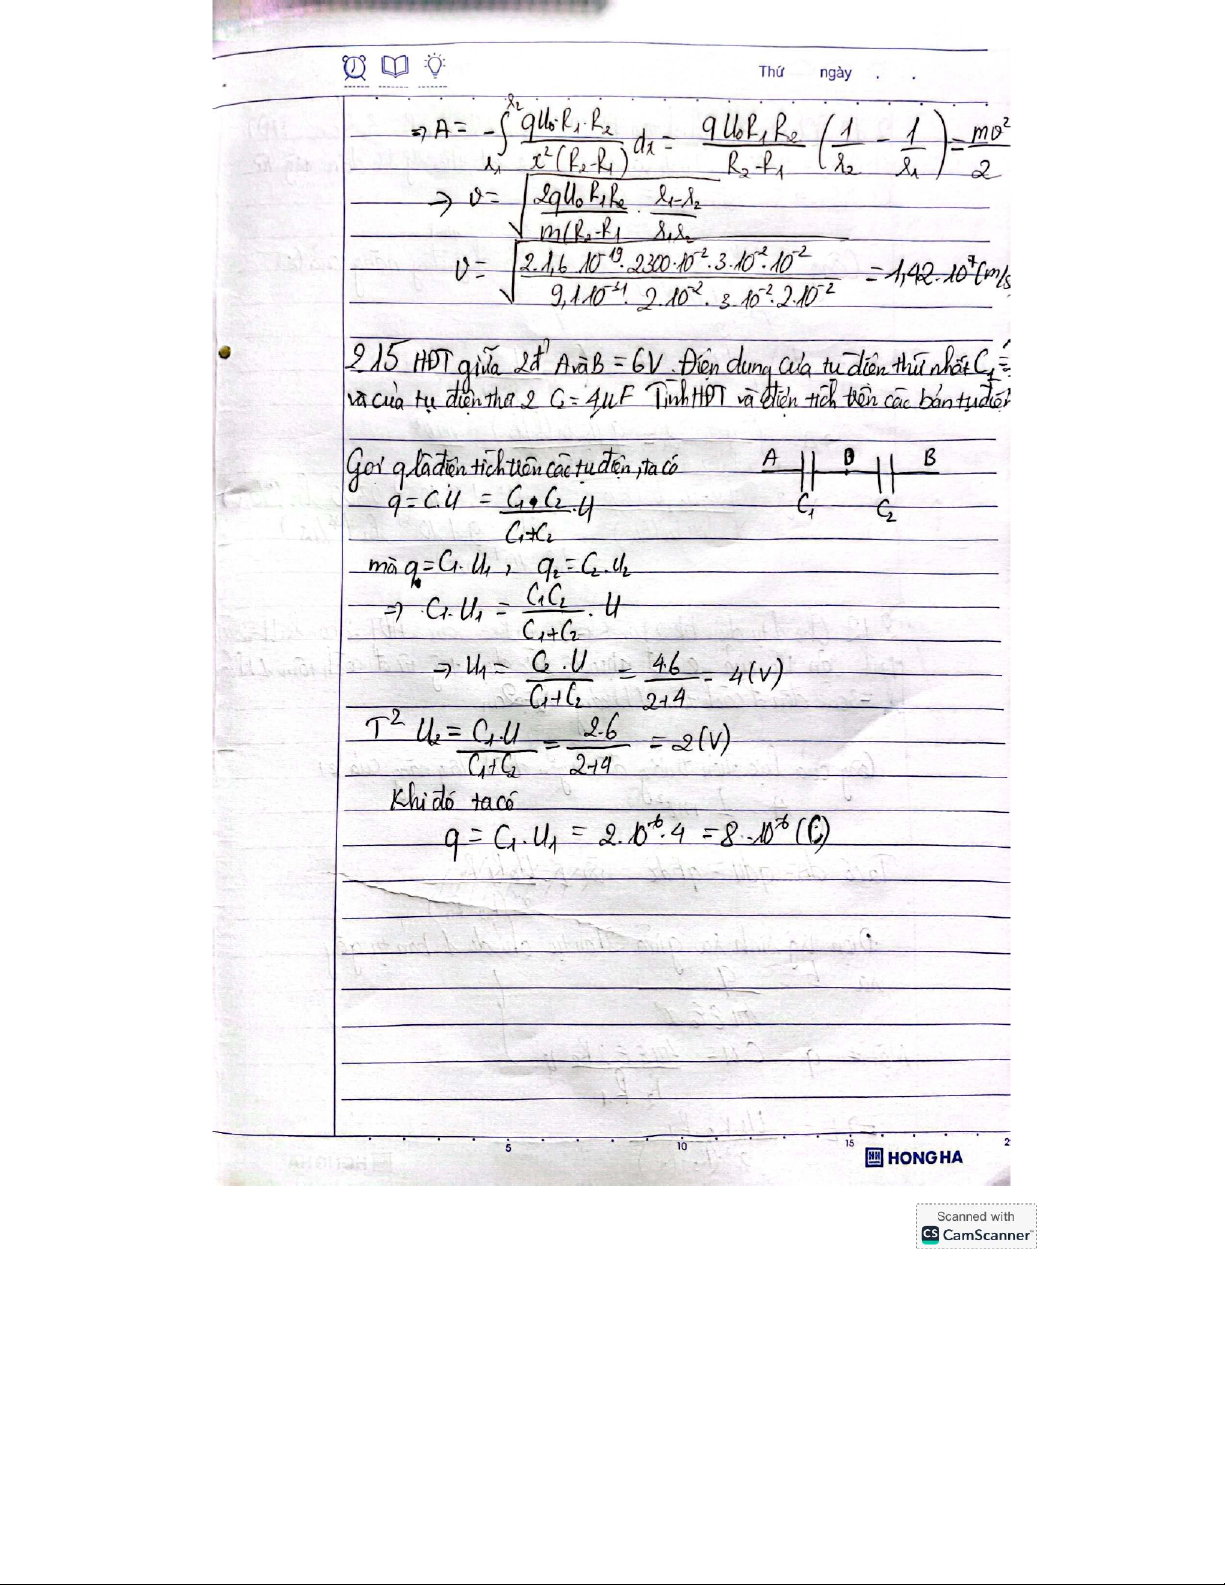 Thứ ngày . .
=> A = -∫ x₁ x₂ qU₀·R₁·R₂ / x²(R₂-R₁) dx = qU₀R₁R₂ / R₂-R₁ (1/x₂ - 1/x₁) = mv²/2
=> v = √(2qU₀R₁R₂ / m(R₂-R₁ · x₁-x₂ / x₁x₂)
v = √(2.1,6 10⁻¹⁹·2300·10⁻²·3·10⁻²·10⁻² / 9,1 10⁻³¹·2.10⁻²·3·10⁻²·2.10⁻²) = 1,42·10⁷(m/s
2 15 HĐT giữa 2đ' A và B = 6V. Điện dung của tụ điện thứ nhất C₁ =
và của tụ điện thứ 2 C₂ = 4μF Tính HĐT và điện tích trên các bản tụ điện
Gọi q là điện tích trên các tụ điện, ta có
A B
C₁ C₂
q = C.U = C₁·C₂ / C₁+C₂ · U
mà q = C₁·U₁, q₂ = C₂.U₂
=> C₁.U₁ = C₁C₂ / C₁+C₂ · U
=> U₁ = C₂.U / C₁+C₂ = 4.6 / 2+4 = 4(V)
T² U₂ = C₁.U / C₁+C₂ = 2.6 / 2+4 = 2(V)
Khi đó ta có
q = C₁.U₁ = 2.10⁻⁶·4 = 8·10⁻⁶(C)
5 10 15 2
HONG HA
Scanned with
CS CamScanner